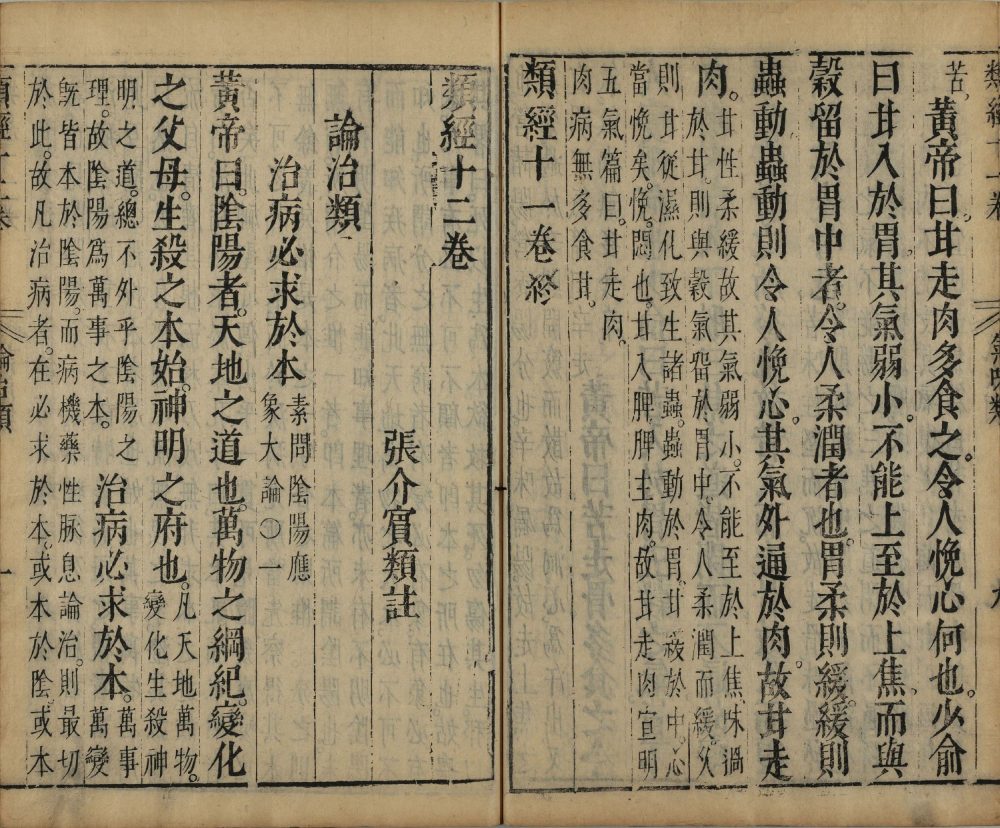 類經十一卷
氣味類
九
苦
黃帝曰甘走肉多食之令人悗心何也少俞
曰甘入於胃其氣弱小不能上至於上焦而與
穀留於胃中者令人柔潤者也胃柔則緩緩則
蟲動蟲動則令人悗心其氣外通於肉故甘走
肉。甘性柔緩故其氣弱小不能至於上焦味過
於甘則與穀氣留於胃中令人柔潤而緩久
則甘從濕化致生諸蟲蟲動於胃甘緩於中心
當悗矣悗悶也甘入脾脾主肉故甘走肉宣明
五氣篇曰甘走肉
肉病無多食甘
類經十一卷終
類經十二卷
張介賔類註
論治類
治病必求於本 素問陰陽應
象大論〇一
黃帝曰陰陽者天地之道也萬物之綱紀變化
之父母生殺之本始神明之府也 凡天地萬物
變化生殺神
明之道總不外乎陰陽之
理故陰陽爲萬事之本
治病必求於本 萬事
萬變
既皆本於陰陽而病機藥性脉息論治則最切
於此故凡治病者在必求於本或本於陰或本
類經十二卷
論治類
一